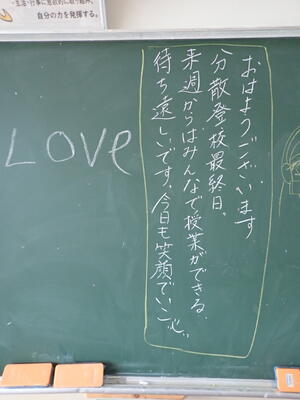 生活・行事に意欲的に取り組み、
自分の力を発揮する。
おはようございます
分散登校最終日。
来週からはみんなで授業ができる。
待ち遠しいです。今日も笑顔でいこ
LOVE